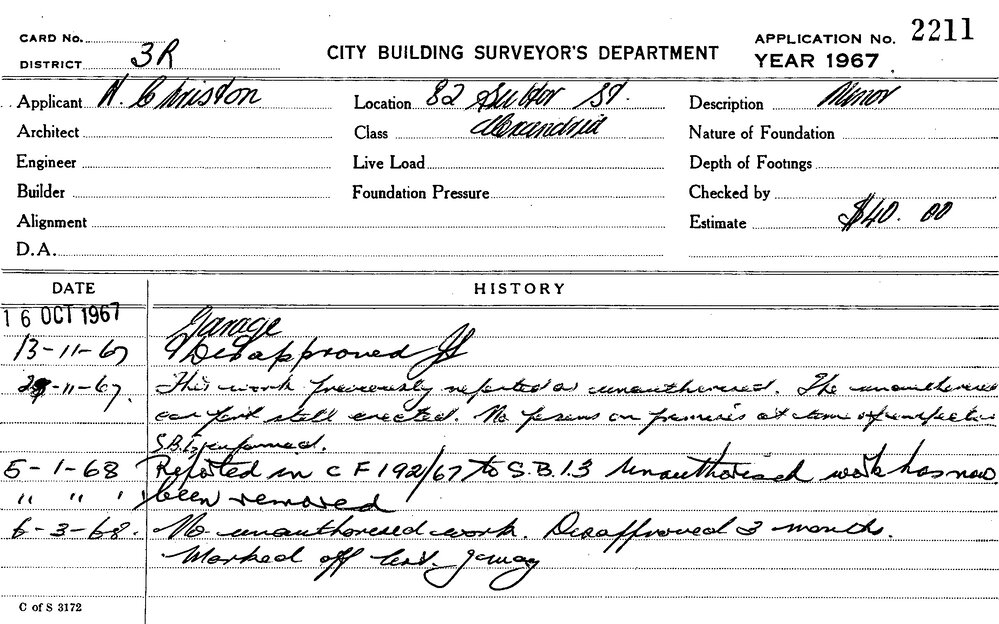 CARD No. APPLICATION No. 2211
DISTRICT 3R CITY BUILDING SURVEYOR'S DEPARTMENT YEAR 1967
Applicant N. Christon Location 82 Suttor St. Description Minor
Architect Class Alexandria Nature of Foundation
Engineer Live Load Depth of Footings
Builder Foundation Pressure Checked by
Alignment Estimate $40.00
D.A.
DATE HISTORY
16 OCT 1967 Garage
13-11-67 Disapproved
-11-67. This work previously reported as unauthorised. The unauthorised
car port still erected. No persons on premises at time of reinspection
informed.
5-1-68 Reported in CF192/67 to S.B.I.3 Unauthorised work has now
" " " been removed
6-3-68. No unauthorised work. Disapproved 3 months.
Marked off
C of S 3172